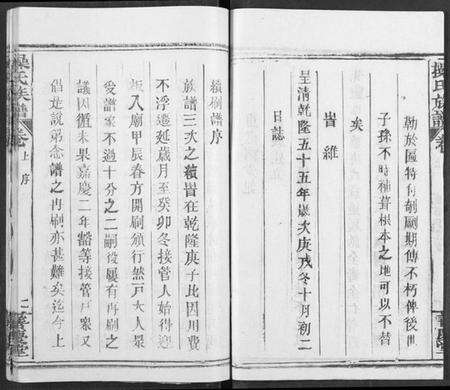 勒於區特付剞劂期傳不朽俾後世
子孫不時種葺根本之地可以不替
矣
旹維
皇清乾隆五十五年歲次庚戌冬十月朔二
日誌
續刷譜序
族譜三次之續嘗在乾隆庚子比因用費
不浮遷延歲月至癸卯冬接管人始得迎
板入廟甲辰春方開刷頒行然戸大人眾
受譜家不過十分之二嗣後屢有再刷之
議因循未果嘉慶二年豁等接管戸眾又
倡是說第念譜之再刷亦甚難矣迄今上
吳氏族譜 卷上 序 二
氏族譜 卷